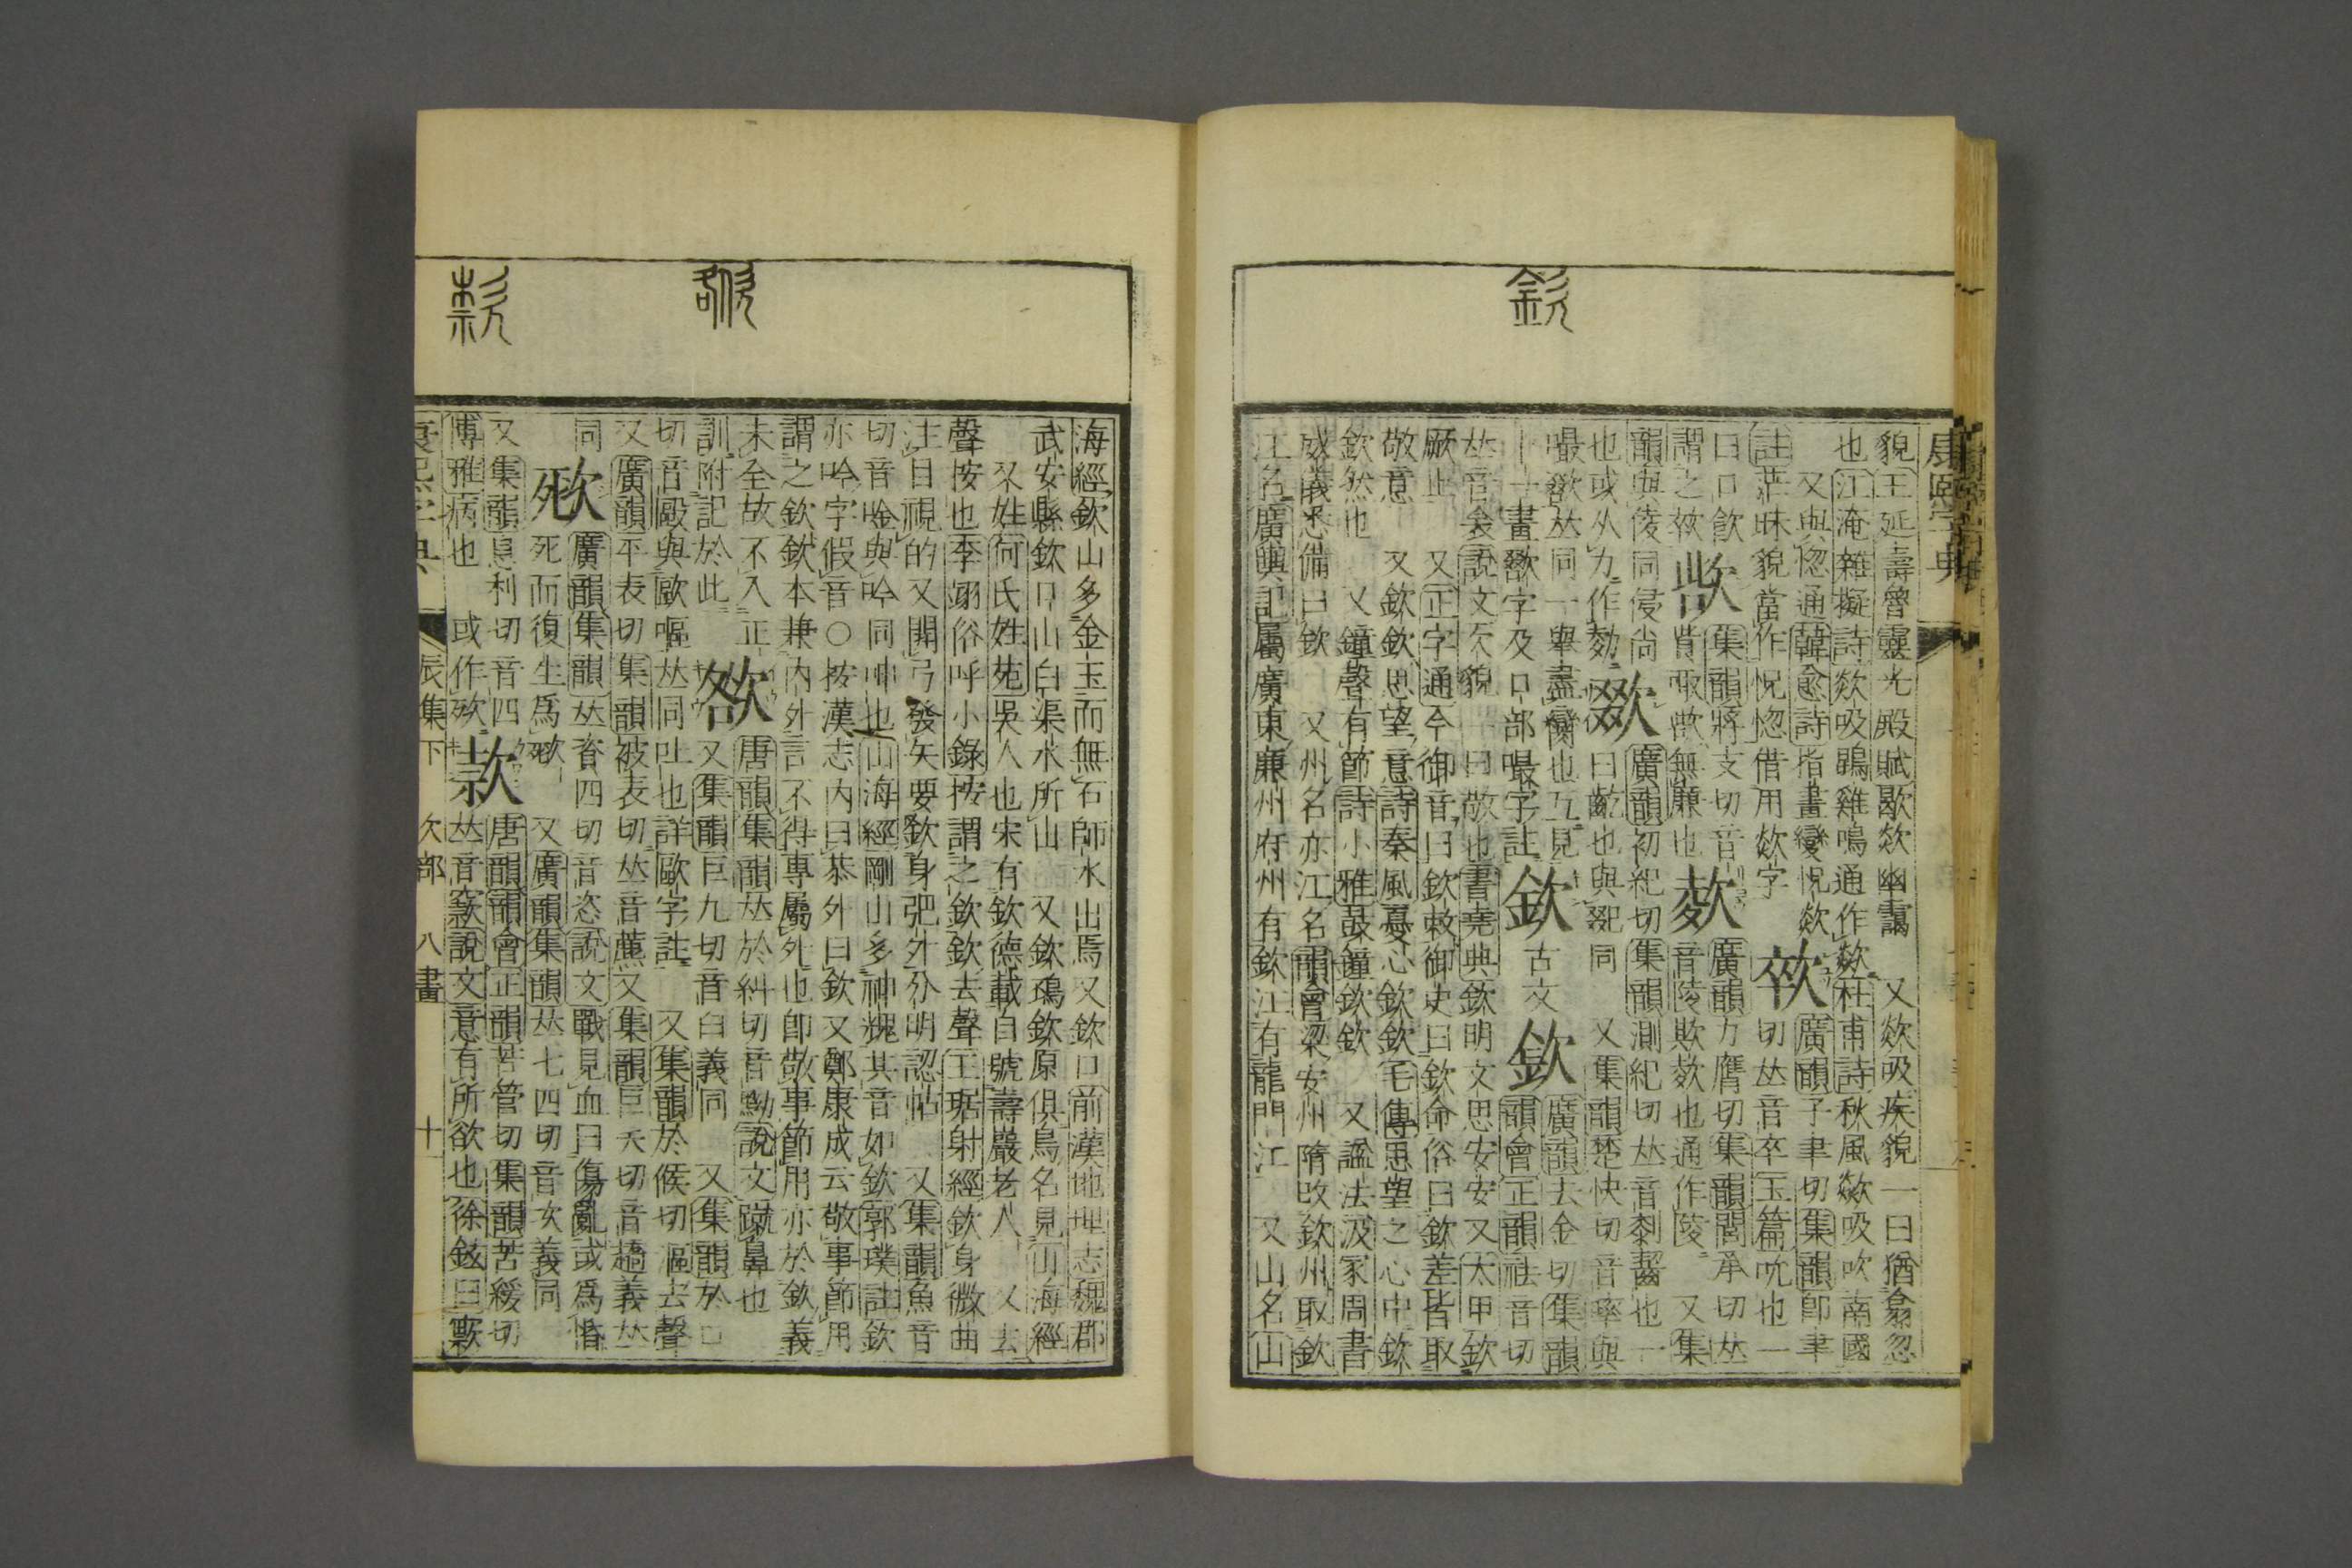 康熙字典
貌王延壽魯靈光殿賦歘欻幽靄 又欻吸疾貌一曰猶翕忽
也江淹雜擬詩欻吸鵾雞鳴通作歘杜甫詩秋風歘吸吹南國
又與惚通韓愈詩指畫變怳欻 廣韻子聿切集韻卽聿
註茫昧貌當作怳惚借用欻字 切𠀤音卒玉篇吮也一
曰口飮 集韻將支切音 廣韻力膺切集韻閭承切𠀤
謂之 㰣 無願也 音陵欺 也通作陵 又集
韻與倰同侵尚 廣韻初紀切集韻測紀切𠀤音 齧也一
也或从力作 曰齝也與 同 又集韻楚快切音 與
嘬 𠀤同一舉盡臠也互見 廣韻去金切集韻
十一畫 字及口部嘬字註 欽 古文 韻會正韻祛音切
𠀤音衾說文欠貌 一曰敬也書堯典欽明文思安安又太甲欽
厥止 又正字通今御音曰欽敕御史曰欽命俗曰欽差皆取
敬意 又欽欽思望意詩秦風憂心欽欽毛傳思望之心中欽
欽然也 又鐘聲有節詩小雅鼓鐘欽欽 又諡法汲冢周書
威儀悉備曰欽 又州名亦江名韻會梁安州隋改欽州取欽
江名廣輿記屬廣東廉州府州有欽江有龍門江 又山名山
海經欽山多金玉而無石師水出焉又欽口前漢地理志魏郡
武安縣欽口山白渠水所出 又欽䲹欽原俱鳥名見山海經
又姓何氏姓苑吳人也宋有欽德載自號壽巖老人 又去
聲按也李翊俗呼小錄按謂之欽欽去聲王琚射經欽身微曲
注目視的又開弓發矢要欽身弝外分明認帖 又集韻魚音
切音崟與吟同呻也山海經剛山多神 其音如欽郭璞註欽
亦吟字假音○按漢志內曰恭外曰欽又鄭康成云敬事節用
謂之欽欽本兼內外言不得專屬外也卽敬事節用亦於欽義
未全故不入正 唐韻集韻𠀤於糾切音黝說文蹴鼻也
訓附記於此 㰶 又集韻巨九切音臼義同 又集韻於口
切音毆與歐嘔𠀤同吐也詳歐字註 又集韻於候切嘔去聲
又廣韻平表切集韻被表切𠀤音藨又集韻巨夭切音趫義𠀤
同 廣韻集韻𠀤資四切音恣說文戰見血曰傷亂或爲惛
死而復生爲 又廣韻集韻𠀤七四切音次義同
又集韻息利切音四 唐韻韻會正韻苦管切集韻苦緩切
博雅病也 或作 款 𠀤音窾說文意有所欲也徐鉉曰窾
康熙字典 辰集下 欠部 八畫 十